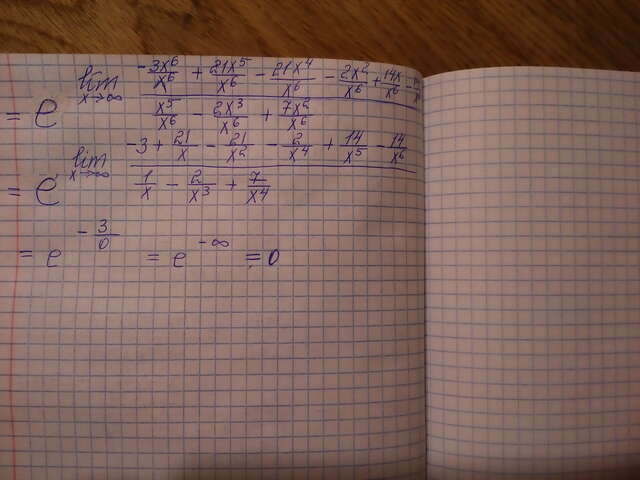 = e^{lim_{x→∞} \frac{-\frac{3x^6}{x^6} + \frac{21x^5}{x^6} - \frac{21x^4}{x^6} - \frac{2x^2}{x^6} + \frac{14x}{x^6} -}{\frac{x^5}{x^6} - \frac{2x^3}{x^6} + \frac{7x^2}{x^6}}}
= e^{lim_{x→∞} \frac{-3 + \frac{21}{x} - \frac{21}{x^2} - \frac{2}{x^4} + \frac{14}{x^5} - \frac{14}{x^6}}{\frac{1}{x} - \frac{2}{x^3} + \frac{7}{x^4}}}
= e^{-\frac{3}{0}} = e^{-∞} = 0